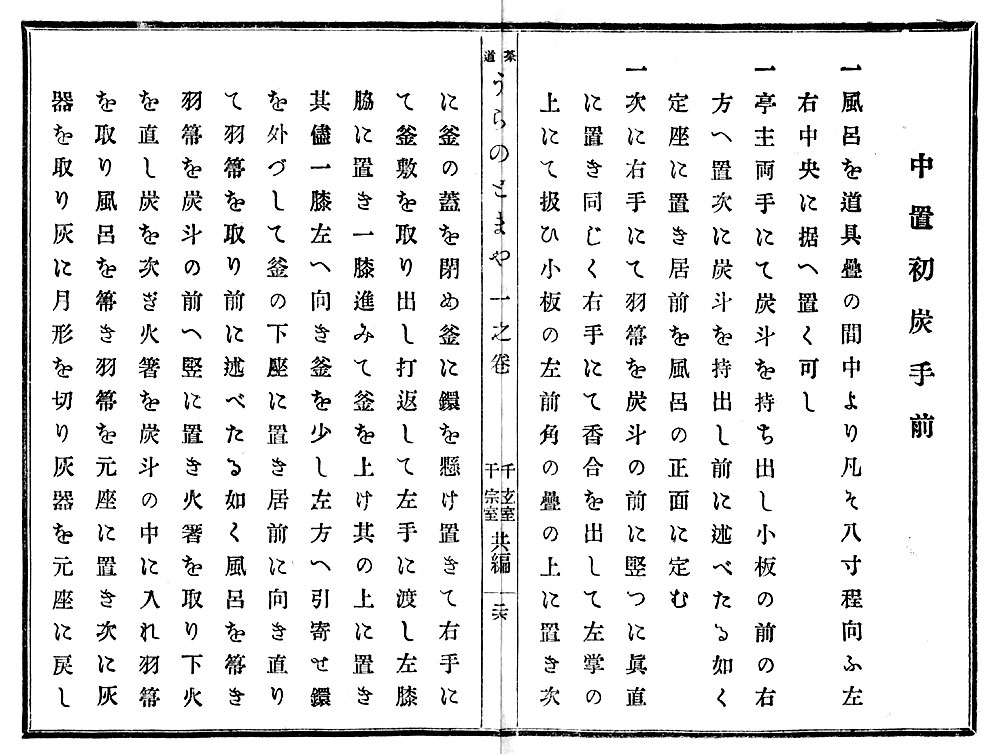 中置初炭手前
一風呂を道具疊の間中より凡そ八寸程向ふ左
右中央に据へ置く可し
一亭主両手にて炭斗を持ち出し小板の前の右
方へ置次に炭斗を持出し前に述べたる如く
定座に置き居前を風呂の正面に定む
一次に右手にて羽箒を炭斗の前に竪つに眞直
に置き同じく右手にて香合を出して左掌の
上にて扱ひ小板の左前角の疊の上に置き次
茶道 うらのとまや一之卷 千玄室 千宗室 共編 二六
に釜の蓋を閉め釜に鐶を懸け置きて右手に
て釜敷を取り出し打返して左手に渡し左膝
脇に置き一膝進みて釜を上け其の上に置き
其儘一膝左へ向き釜を少し左方へ引寄せ鐶
を外づして釜の下座に置き居前に向き直り
て羽箒を取り前に述べたる如く風呂を箒き
羽箒を炭斗の前へ竪に置き火箸を取り下火
を直し炭を次ぎ火箸を炭斗の中に入れ羽箒
を取り風呂を箒き羽箒を元座に置き次に灰
器を取り灰に月形を切り灰器を元座に戻し